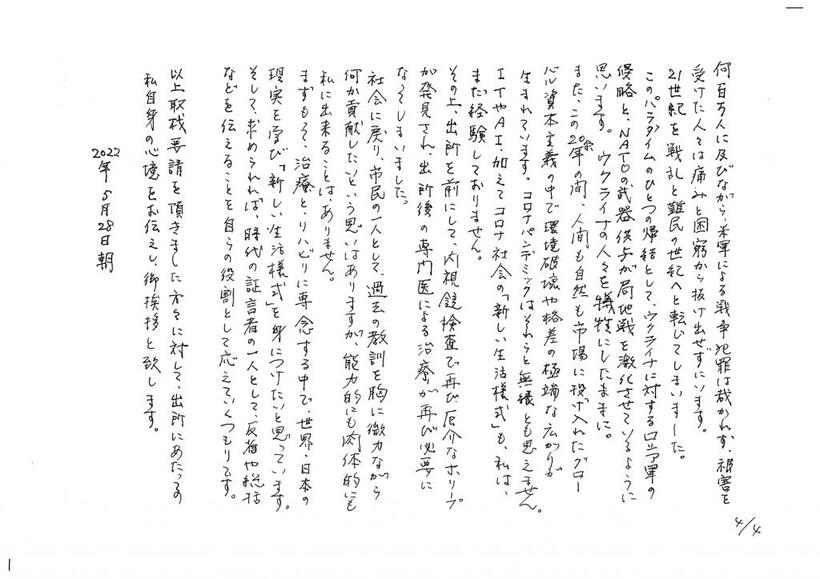 何百万人に及びながら、米軍による戦争犯罪は裁かれず、被害を
受けた人々は痛みと困窮から抜け出せずにいます。
21世紀を戦乱と難民の世紀へと転じてしまいました。
このパラダイムのひとつの帰結として、ウクライナに対するロシア軍の
侵略と、NATOの武器供与が局地戦を激化させているように
思います。ウクライナの人々を犠牲にしたままに。
また、この20余年の間、人間も自然も市場に投げ入れたグロー
バル資本主義の中で環境破壊や格差の極端な広がりが
生まれています。コロナパンデミックはそれらと無縁とも思えません。
ITやAI、加えてコロナ社会の「新しい生活様式」も、私は、
まだ経験しておりません。
その上、出所を前にして、内視鏡検査で再び厄介なポリープ
が発見され、出所後の専門医による治療が再び必要に
なってしまいました。
社会に戻り、市民の一人として、過去の教訓を胸に微力ながら
何か貢献したいという思いはありますが、能力的にも肉体的にも
私に出来ることは、ありません。
まずもって、治療とリハビリに専念する中で、世界・日本の
現実を学び「新しい生活様式」を身につけたいと思っています。
そして、求められれば、時代の証言者の一人として、反省や総括
などを伝えることを自らの役割として応えていくつもりです。
以上取材要請を頂きました方々に対して、出所にあたっての
私自身の心境をお伝えし、御挨拶と致します。
2022年5月28日朝
4/4